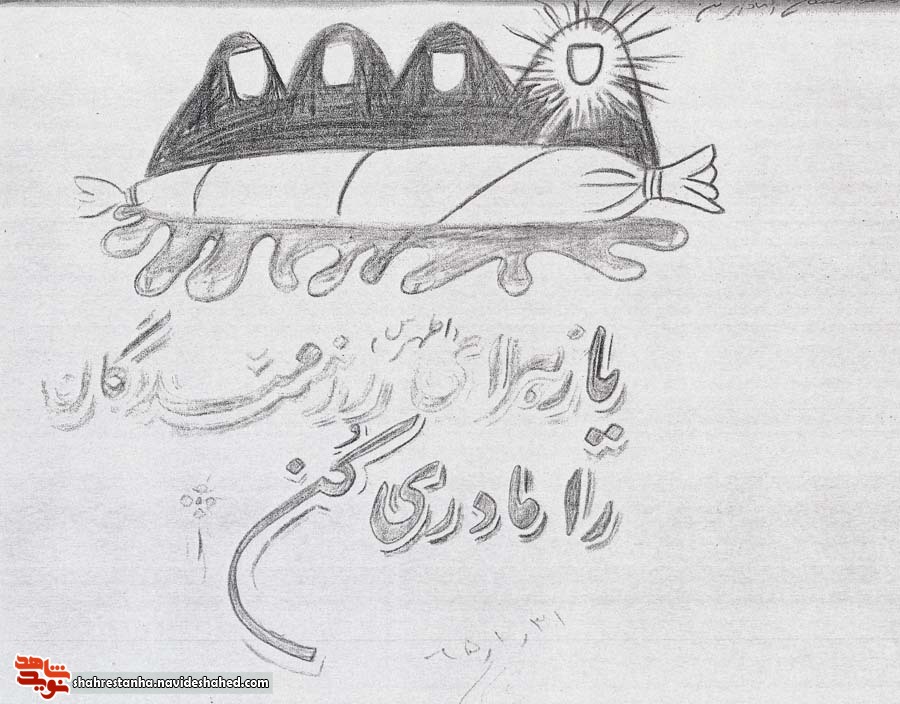 یا زهرای (اطهر س) رزمندگان
را مادری کن
نوید شاهد
shahrestanha.navideshahed.com